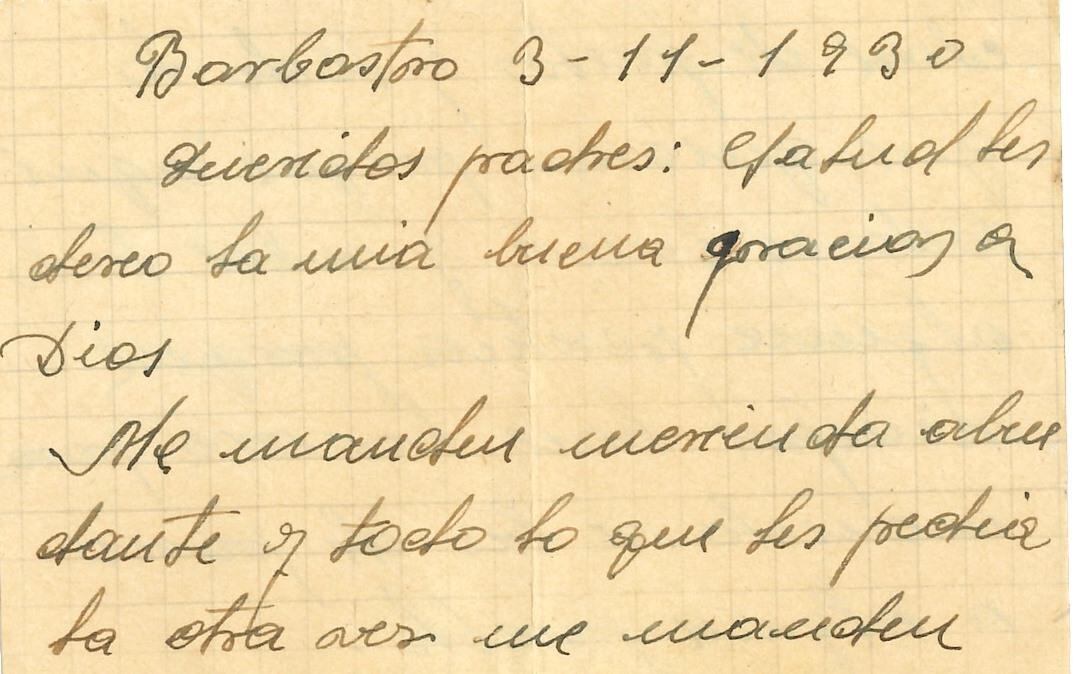 Barbastro 3-11-1930
Queridos padres: Salud les
deseo la mia buena gracias a
Dios
Me manden merienda abun
dante y todo lo que les pedia
la otra vez me manden